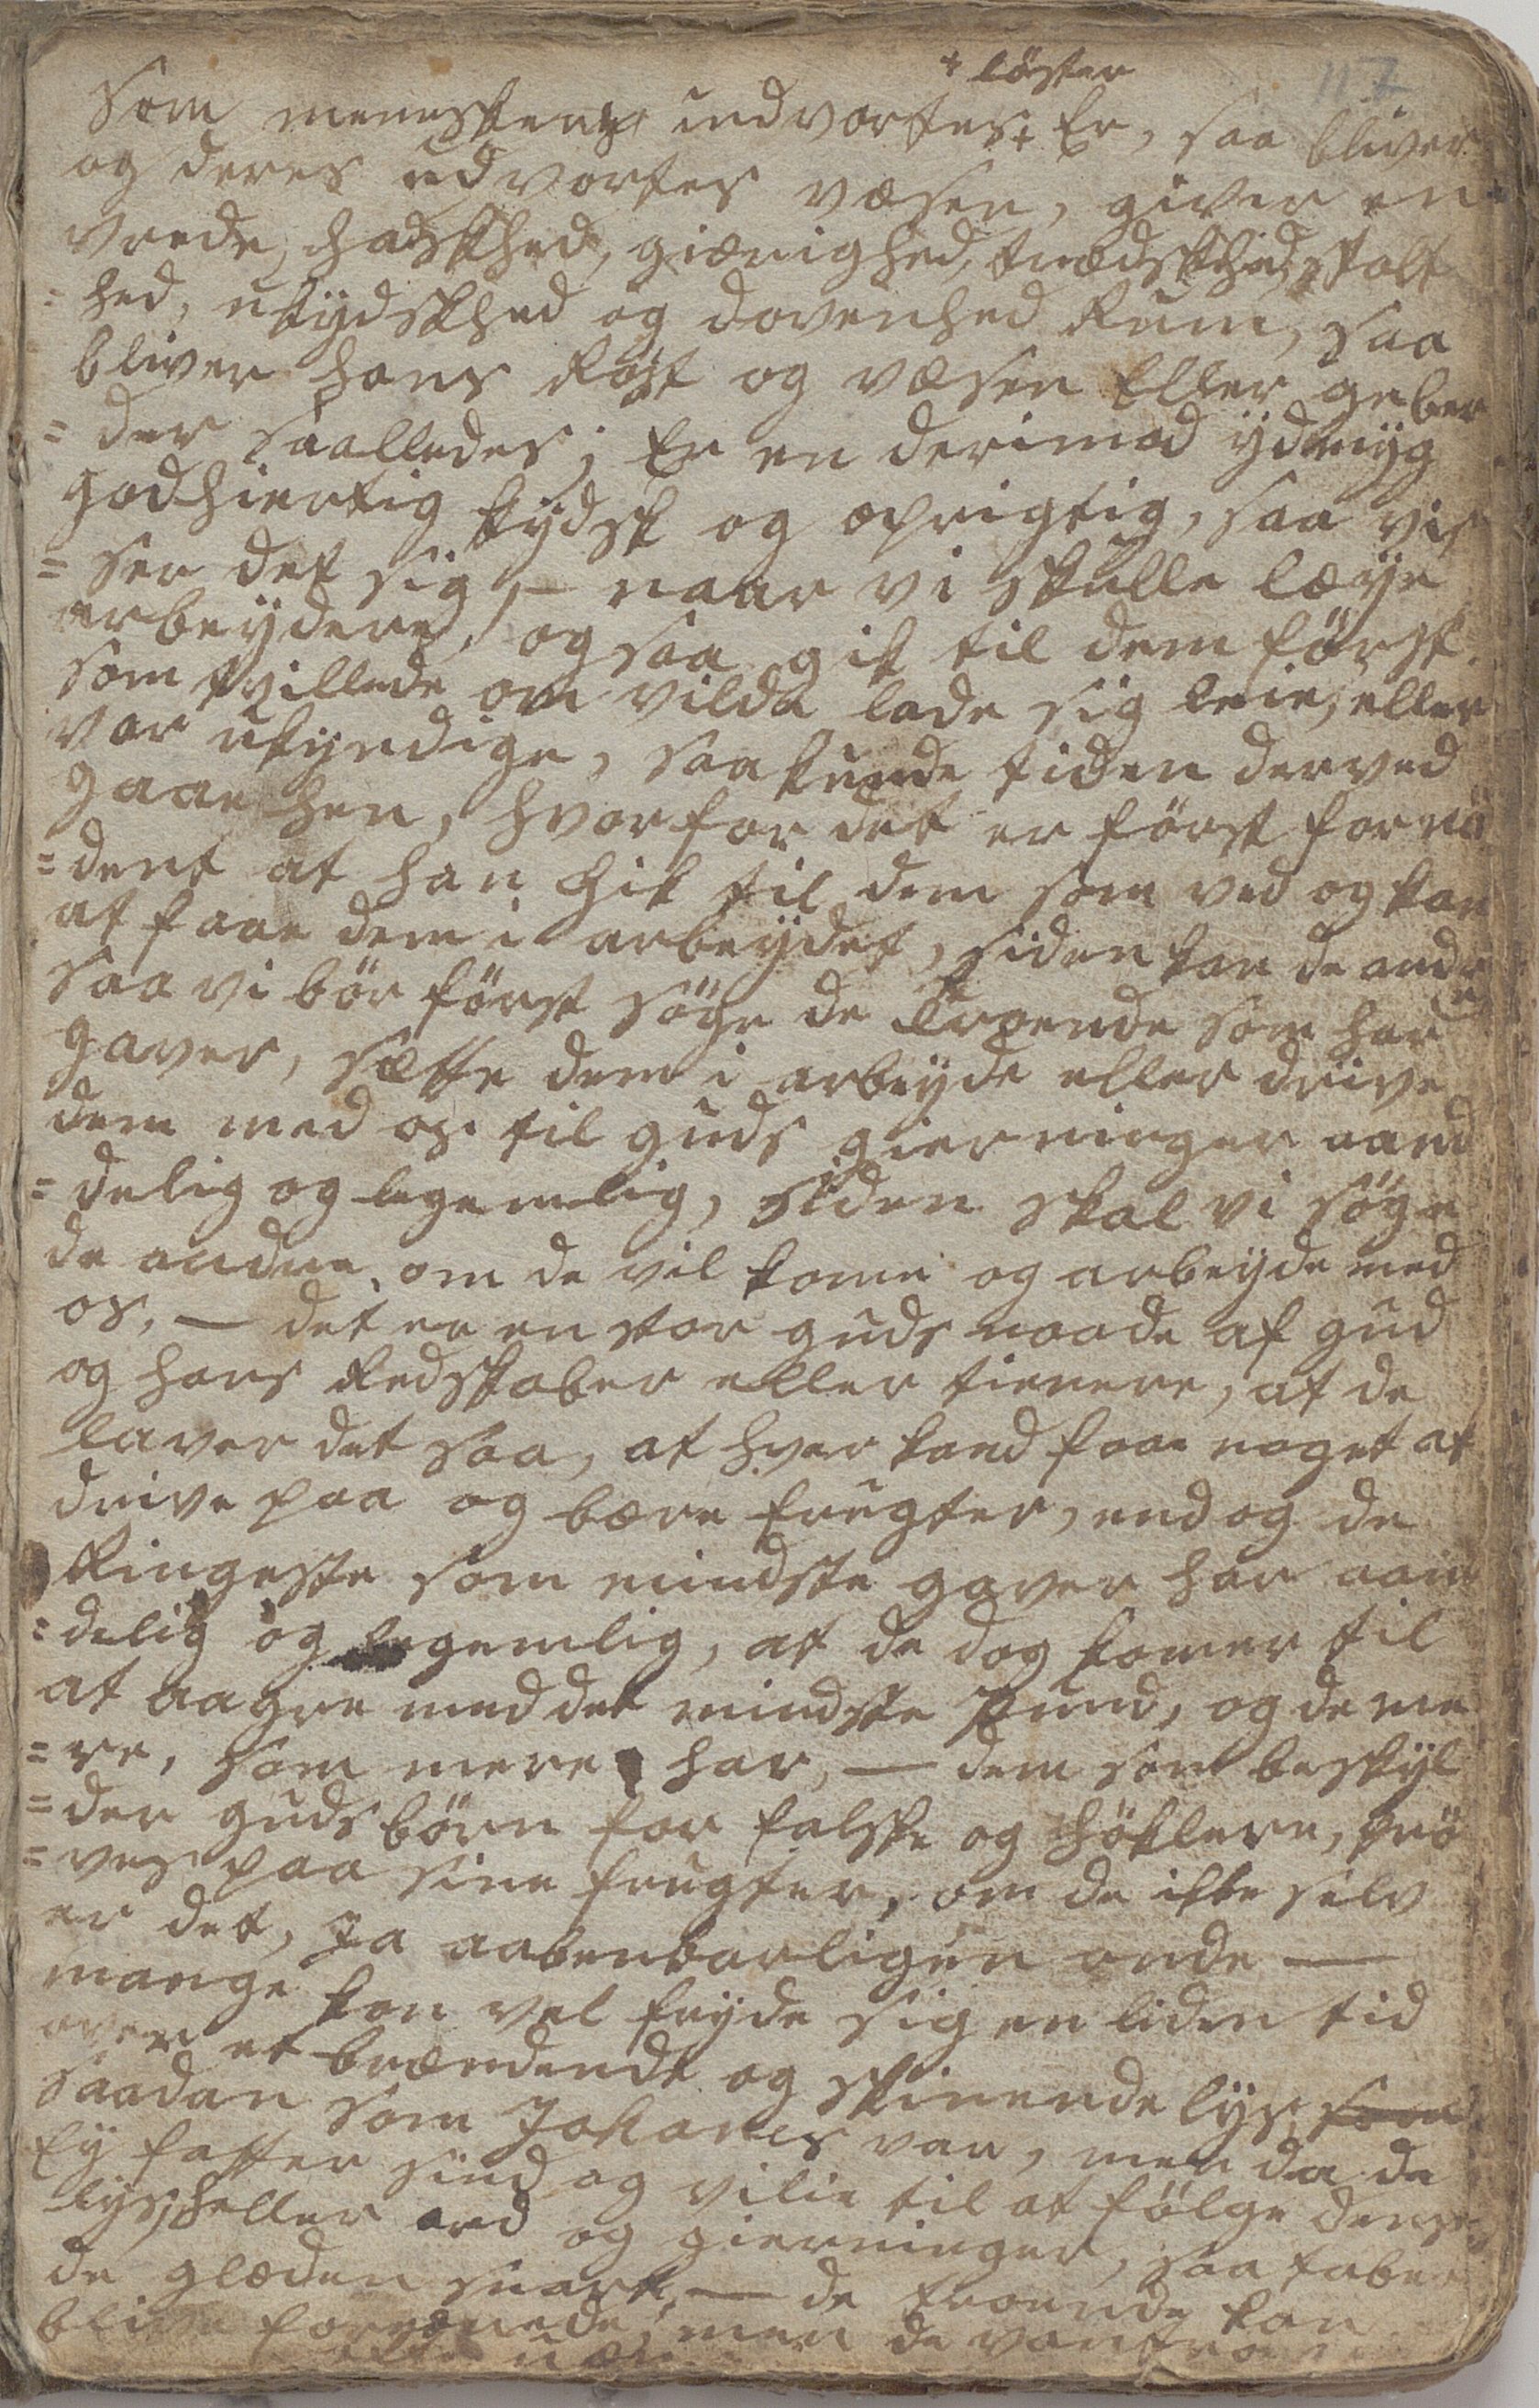 + löster
117
Som menneskens indvortes + Er, saa bliver
og deres udvortes væsen, giver en
vrede, hadskhed, gierighed, trædskhed, stolt
=hed, ukydskhed og dovenhed Rum, saa
bliver hans Röst og væsen Eller geber
=der saalledes; Er en derimod ydmyg
godhiertig kydsk og oprigtig, saa vi
=ser det sig, — naar vi skulle læye
arbeydere, og saa gik til dem först
som tvillede om vilde lade sig leie, eller
var ukyndige, saa kunde tiden derved
gaae hen, hvorfor det er först fornö
=dent at han Gik til dem som ved og kan
at faae dem i arbeydet, siden kan de andre
saa vi bör först söge de Troende som har
gaver, sætte dem i arbeyde eller drive
dem med os til guds gierninger aand
=delig og legemlig, siden skal vi söge
de andre om de vil kome og arbeyde med
os, — det er en stor guds naade af gud
og hans Redskaber eller tienere, at de
laver det saa, at hver kand faae noget at
drive paa og bære frugter, end og de
Ringeste som mindste gaver har aan
=delig og legemlig, at de dog komer til
at aagre med det mindste pund, og de me
=re, som mere har, — dem som beskyl
=der guds börn for falske og höklere, prö
=ves paa sine frugter, om de ikke selv
er det, Ja aabenbarligen onde —
mange kan vel fryde sig en liden tid
over et brændende og skinende lys, som
saadan som Johanes var, men da de
Ey fatter sind og vilie til at fölge denne
lys, heller ord og gierninger, saa taber
de glæden snart, — de troende kan
blive men de vantro